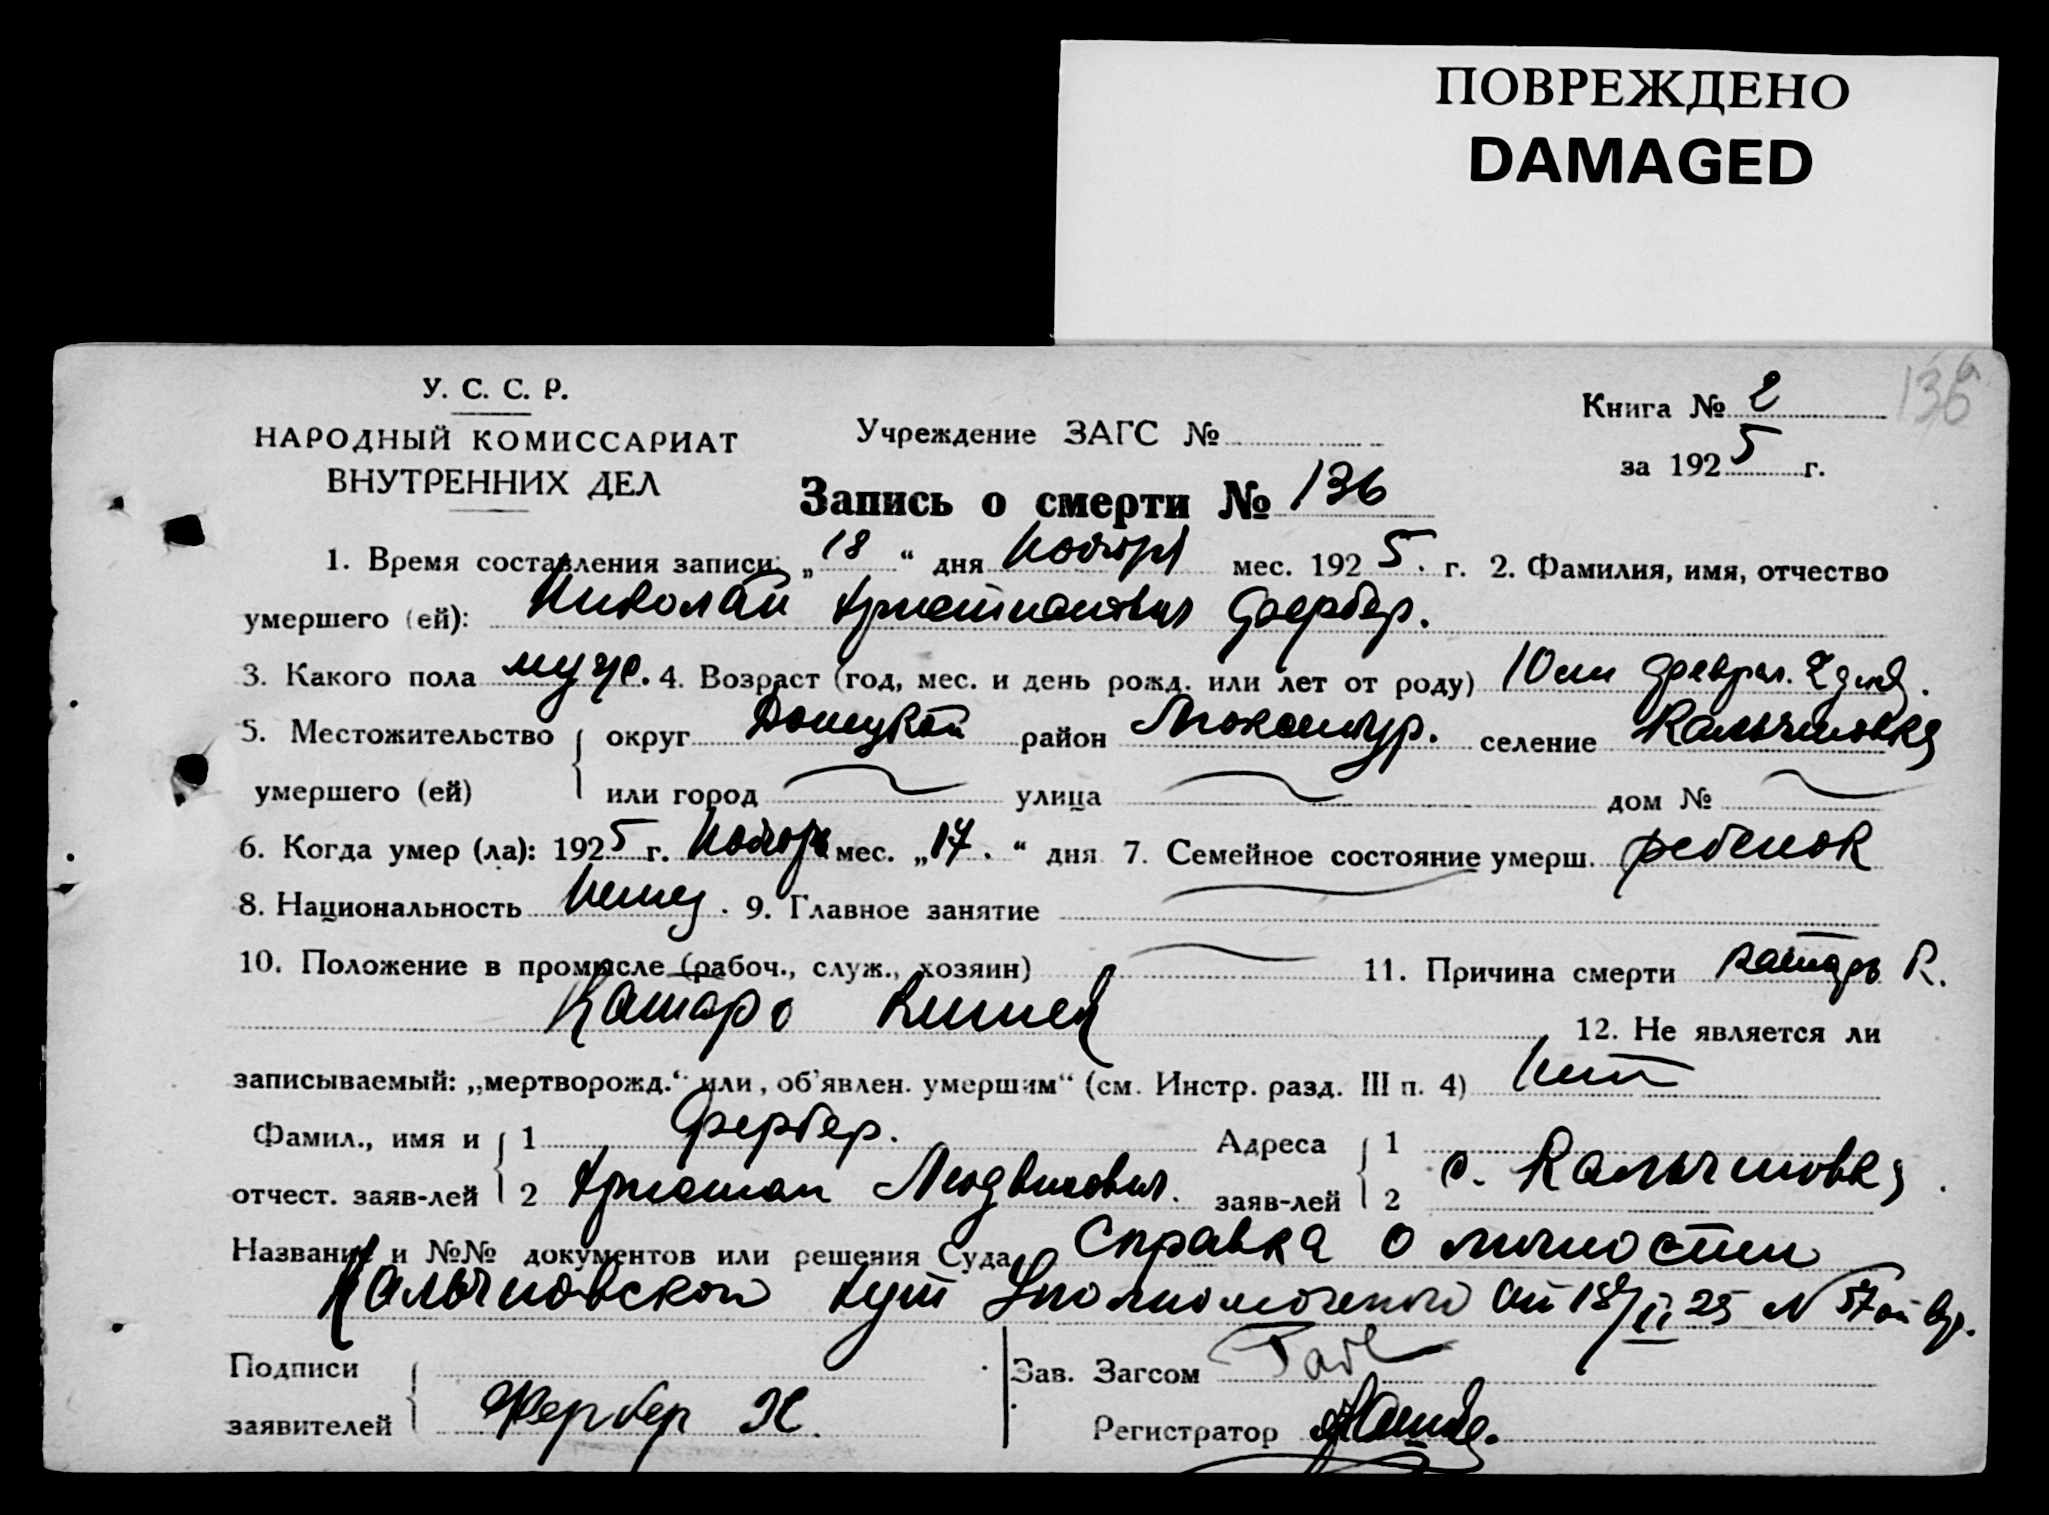 ПОВРЕЖДЕНО
DAMAGED
136а
У. С. С. Р.
НАРОДНЫЙ КОМИССАРИАТ
ВНУТРЕННИХ ДЕЛ
Учреждение ЗАГС №
Книга № 2
за 1925 г.
Запись о смерти № 136
1. Время составления записи: „18“ дня Ноября мес. 1925. г. 2. Фамилия, имя, отчество
умершего (ей): Николай Христианович Фербер.
3. Какого пола муж. 4. Возраст (год, мес. и день рожд. или лет от роду) 10ти Феврал. 2 дня.
5. Местожительство округ Донецкой район Люксембур. селение Кальчиновка
умершего (ей) или город улица дом №
6. Когда умер (ла): 1925 г. Ноября мес. „17.“ дня 7. Семейное состояние умерш. ребенок
8. Национальность Немец. 9. Главное занятие
10. Положение в промысле (рабоч., служ., хозяин) 11. Причина смерти катар к.
Катар Кишек 12. Не является ли
записываемый: „мертворожд.“ или „об'явлен. умершим“ (см. Инстр. разд. III п. 4) Нет
Фамил., имя и 1 Фербер. Адреса 1
отчест. заяв-лей 2 Христиан Людвигович. заяв-лей 2 с. Кальчиновка.
Название и №№ документов или решения Суда Справка о личности
Кальчиновской хут Уполномоченого от 18/II 25 N 57
Подписи Зав. Загсом
заявителей Фербер Х. Регистратор